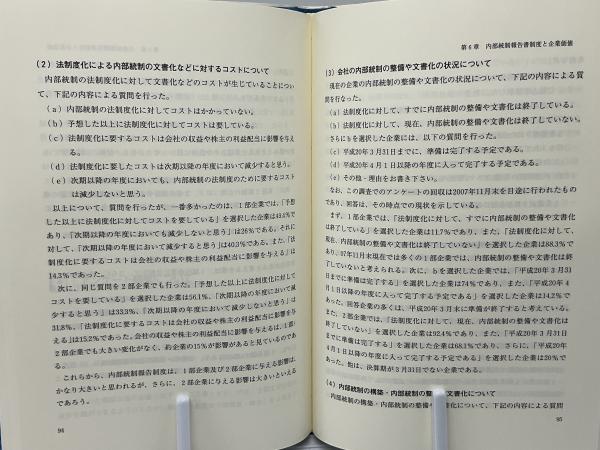 （2）法制度化による内部統制の文書化などに対するコストについて
内部統制の法制度化に対して文書化などのコストが生じていることについ
て、下記の内容による質問を行った。
（a）内部統制の法制度化に対してはコストはかかっていない。
（b）予想した以上に法制度化に対してコストは要している。
（c）法制度化に要するコストは会社の収益や株主の利益配当に影響を与え
る。
（d）法制度化に要したコストは次期以降の年度において減少すると思う。
（e）次期以降の年度においても、内部統制の法制度化のために要するコスト
は減少しないと思う。
以上について、質問を行ったが、一番多かったのは、1部企業では、「予想
した以上に法制度化に対してコストを要している」を選択した企業は
であり、「次期以降の年度においても減少しないと思う」は26％である。それに
対して、「次期以降の年度において減少すると思う」は40.3％である。また、「法
制度化に要するコストは会社の収益や株主の利益配当に影響を与える」は
14.3％であった。
次に、同じ質問を2部企業でも行った。「予想した以上に法制度化に対して
コストを要している」を選択した企業は56.1％、「次期以降の年度において減
少すると思う」は33.3％、「次期以降の年度において減少しないと思う」は
31.8％、「法制度化に要するコストは会社の収益や株主の利益配当に影響を与
える」は15.2％であった。会社の収益や株主の利益配当に与える影響は、1部・
2部企業でも大きい変化がなく、約企業の15％が影響があると見ているのであ
る。
これらから、内部統制報告制度は、1部企業及び2部企業に与える影響は、
かなり大きいと思われるが、さらに、2部企業に与える影響は大きいといえる
であろう。
94
第6章　内部統制報告書制度と企業価値
（3）会社の内部統制の整備や文書化の状況について
現在の企業の内部統制の整備や文書化の状況について、下記の内容による質
問を行なった。
（a）法制度化に対して、すでに内部統制の整備や文書化は終了している。
（b）法制度化に対して、現在、内部統制の整備や文書化は終了していない。
さらにbを選択した企業には、以下の質問を行った。
（c）平成20年3月31日までに、準備は完了する予定である。
（d）平成20年4月1日以降の年度に入って完了する予定である。
（e）その他・理由をお書き下さい。
なお、この調査でのアンケートの回収は2007年11月末を目途に行われたもの
であり、回答は、その時点での現状を示している。
まず、1部企業では、「法制度化に対して、すでに内部統制の整備や文書化は
終了している」を選択した企業は11.7％であり、また、「法制度化に対して、
現在、内部統制の整備や文書化は終了していない」を選択した企業は88.3％で
あり、07年11月末現在では多くの1部企業では、内部統制の整備や文書化は終了
していないと考えられる。次に、bを選択した企業では、「平成20年3月31
日までに、準備は完了する予定である」を選択した企業は74％であり、また、「平成20年4
月1日以降の年度に入って完了する予定である」を選択した企業は14.2％であ
った。回答企業の多くは、平成20年3月末に準備が終了すると考えている。
また、2部企業では、「法制度化に対して、現在、内部統制の整備や文書化は
終了していない」を選択した企業は92.4％であり、また、「平成20年3月31日
までに、準備は完了する予定である」を選択した企業は68.1％、さらに、「平成20年
4月1日以降の年度に入って完了する予定である」を選択した企業は20％で
あった。他は、決算期が3月31日でない企業である。
（4）内部統制の構築・内部統制の整備や文書化について
内部統制の構築・内部統制の整備や文書化について、下記の内容による質問
95